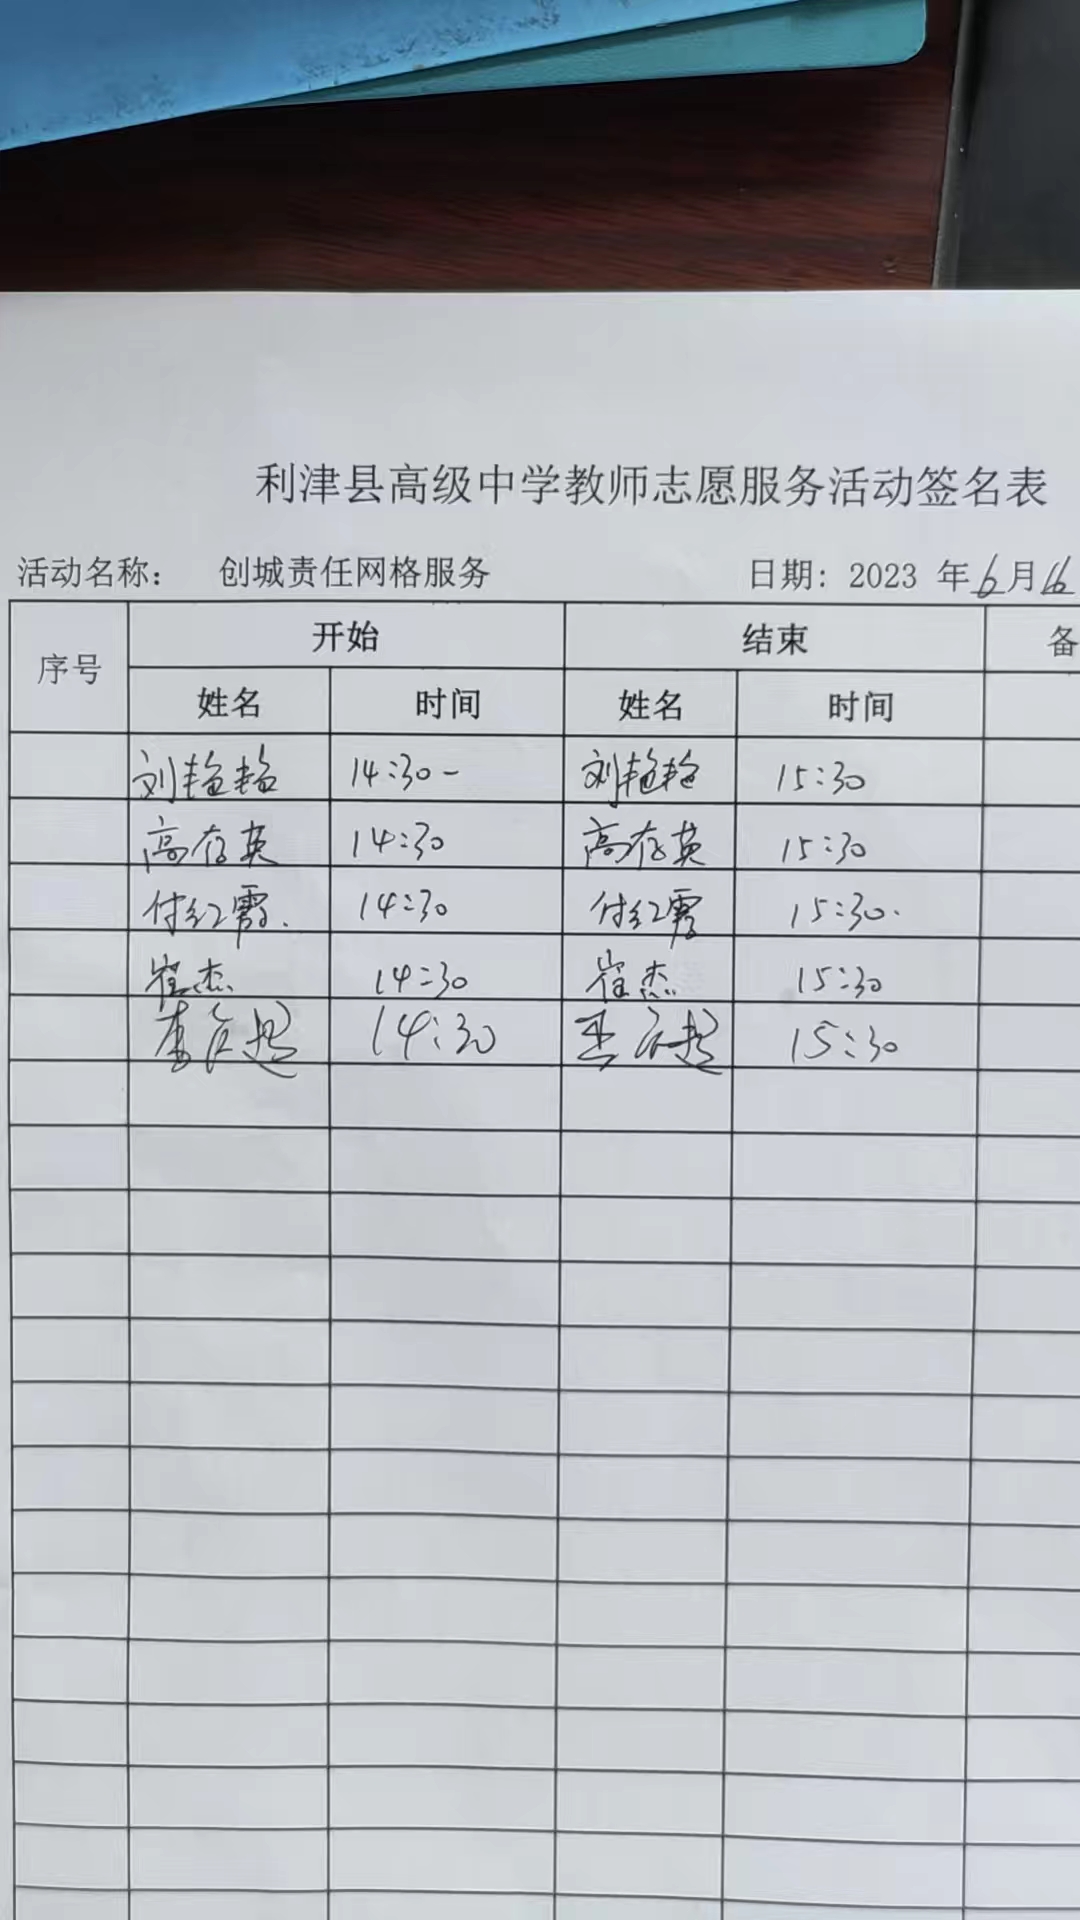 利津县高级中学教师志愿服务活动签名表
活动名称： 创城责任网格服务 日期: 2023 年6月16
序号 开始 结束 备
姓名 时间 姓名 时间
刘艳艳 14:30- 刘艳艳 15:30
高存英 14:30 高存英 15:30
付红霞. 14:30 付红霞 15:30.
崔杰 14:30 崔杰 15:30
14:30 15:30